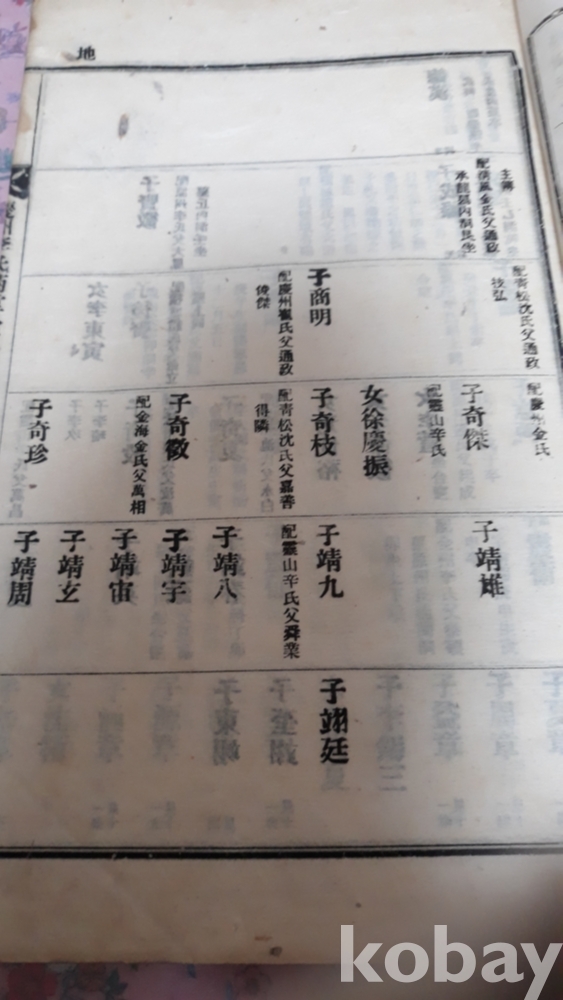 地
主簿
配清風金氏父通政
水龍宮內洞艮坐
配青松沈氏父通政
技弘
子商明
配慶州崔氏父通政
俊傑
子奇傑
配靈山辛氏
女徐慶振
子奇枝
配青松沈氏父嘉善
得隣
子奇徵
配金海金氏父萬相
子奇珍
子靖雄
子靖九
配靈山辛氏父舜業
子靖八
子靖宇
子靖宙
子靖玄
子靖周
子翊廷
kobay